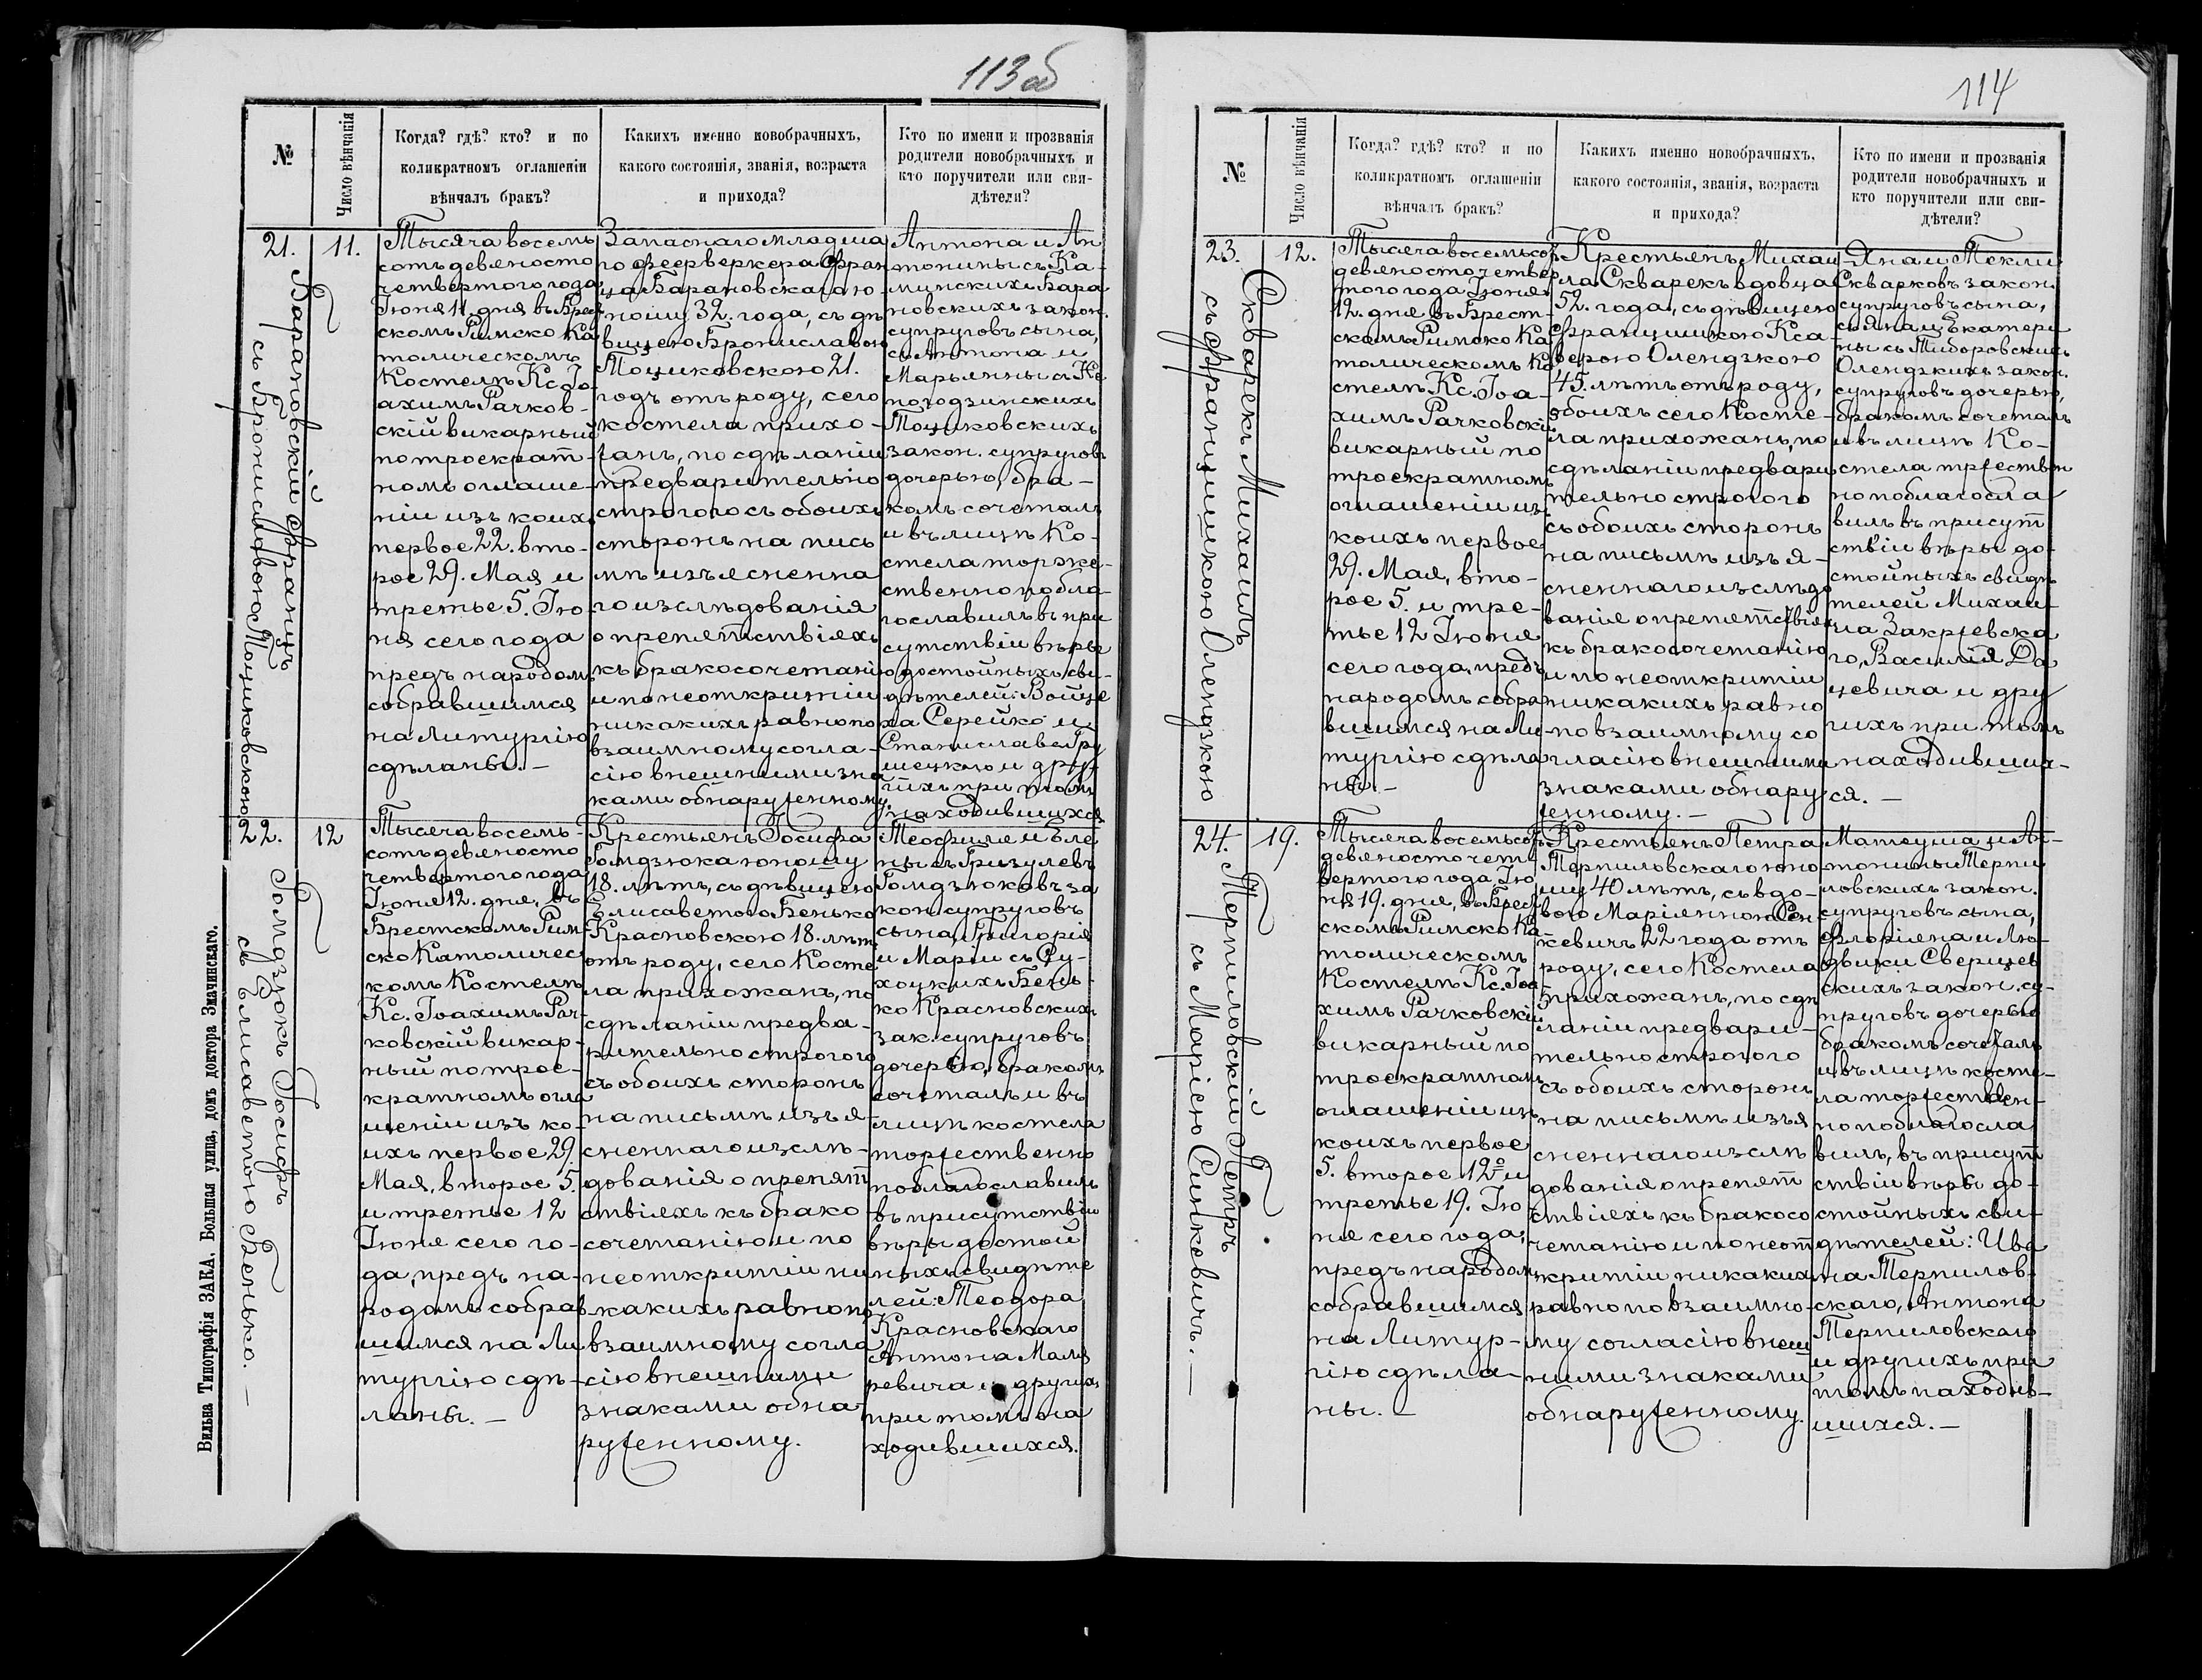 113 об
№
Число вѣнчанія
Когда? гдѣ? кто? и по
коликратномъ оглашеніи
вѣнчалъ бракъ?
Какихъ именно новобрачныхъ,
какого состоянія, званія, возраста
и прихода?
Кто по имени и прозванія
родители новобрачныхъ и
кто поручители или сви-
дѣтели?
21.
Барановскій Францъ
съ Брониславою Поциковскою
11.
Тысяча восемь
сотъ девяносто
четвертого года
Іюня 11. дня въ Брест
скомъ Римско Ка
толическомъ
Костелѣ Кс. Іо-
ахимъ Рачков-
скій викарный
по троекрат-
номъ оглаше-
ніи изъ коихъ
первое 22. вто-
рое 29. Мая и
третье 5. Ію-
ня сего года
предъ народомъ
собравшимся
на Литургію
сдѣланы. —
Запаснаго младша
го феерверкера Фран
ца Барановскаго ю-
ношу 32. года, съ дѣ
вицею Брониславою
Поциковскою 21.
годъ отъ роду, сего
костела прихо-
жанъ, по сдѣланіи
предварительно
строгого съ обоихъ
сторонъ на пись
мѣ изъясненна
го изслѣдованія
о препятствіяхъ
къ бракосочетанію
и по неоткрытіи
никакихъ равно по
взаимному согла-
сію внешними зна
ками обнаруженному.
Антона и Ан
тонины съ Ка-
минскихъ Бара
новскихъ закон.
супруговъ сына,
съ Антона и
Марьянны съ Не
погодзинскихъ
Поциковскихъ
закон. супруговъ
дочерью, бра-
комъ сочеталъ
и въ лицѣ Ко-
стела торже-
ственно побла-
гославилъ въ при
сутствіи вѣры
достойныхъ сви-
дѣтелей: Войце
ха Серейко и
Станислава Гру
шецкаго и дру
гихъ при томъ
находившихся
22.
Гомдзюкъ Іосифъ
съ Елисаветою Бенько. —
12
Тысяча восемь-
сотъ девяносто
четвертого года
Іюня 12. дня, въ
Брестскомъ Рим
ско Католичес
комъ Костелѣ
Кс. Іоахимъ Рач-
ковскій викар-
ный по трое-
кратномъ огла
шеніи изъ ко-
ихъ первое 29
Мая, второе 5.
и третье 12
Іюня сего го-
да, предъ на-
родомъ собрав
шимся на Ли
тургію сдѣ-
ланы. —
Крестьянъ Іосифа
Гомдзюка юношу
18. лѣтъ, съ дѣвицею
Елисаветою Бенько
Красновскою 18. лѣт.
отъ роду, сего Косте
ла прихожанъ, по
сдѣланіи предва-
рительно строгого
съ обоихъ сторонъ
на письмѣ изъя-
сненнаго изслѣ-
дованія о препят
ствіяхъ къ брако
сочетанію и по
неоткрытіи ни
какихъ равно по
взаимному согла
сію внешними
знаками обна
руженному.
Теофиле и Еле
ны съ Гризулевъ
Гомдзюковъ за
кон. супруговъ
сына, Григорія
и Маріи съ Су-
хоцкихъ Бень-
ко Красновскихъ
зак. супруговъ
дочерью, бракомъ
сочеталъ и въ
лицѣ костела
торжественно
поблагославилъ
въ присутствіи
вѣры достой
ныхъ свидѣте
лей: Теодора
Красновскаго
Антона Мали
ревича и другихъ
при томъ на
ходившихся.
Вильна Типографія ЗАКА. Большая улица, домъ доктора Змачинскаго.
114
№
Число вѣнчанія
Когда? гдѣ? кто? и по
коликратномъ оглашеніи
вѣнчалъ бракъ?
Какихъ именно новобрачныхъ,
какого состоянія, званія, возраста
и прихода?
Кто по имени и прозванія
родители новобрачныхъ и
кто поручители или сви-
дѣтели?
23.
Скварекъ Михаилъ
съ Францишкою Олендзкою
12.
Тысяча восемьсотъ
девяносто четвер
того года Іюня
12. дня въ Брест-
скомъ Римско Ка
толическомъ Ко
стелѣ Кс. Іоа-
химъ Рачковскій
викарный по
троекратномъ
оглашеніи изъ
коихъ первое
29. Мая, вто-
рое 5. и тре-
тье 12 Іюня
сего года, предъ
народомъ собра
вшимся на Ли
тургію сдѣла
ны. —
Крестьянъ Михаи
ла Скварекъ вдовца
52. года, съ дѣвицею
Францишкою Кса-
верою Олендзкою
45. лѣтъ отъ роду,
обоихъ сего Косте-
ла прихожанъ, по
сдѣланіи предвари
тельно строгого
съ обоихъ сторонъ
на письмѣ изъя-
сненнаго изслѣдо
ванія о препятствіяхъ
къ бракосочетанію
и по неоткрытіи
никакихъ равно
по взаимному со
гласію внешними
знаками обнару
женному. —
Яна и Текли
Скварковъ закон.
супруговъ сына,
съ Яна и Екатери
ны съ Тидоровскихъ
Олендзкихъ закон.
супруговъ дочерью,
бракомъ сочеталъ
и въ лицѣ Ко-
стела тржествен
но поблагосла
вилъ въ присут
ствіи вѣры до-
стойныхъ свидѣ
телей Михаи-
ла Закржевска
го, Василія Да
цевича и дру
гихъ при томъ
находивших-
ся. —
24.
Терпиловскій Петръ
съ Маріею Синкевичъ. —
19.
Тысяча восемьсотъ
девяносто чет-
вертого года Ію
ня 19. дня, въ Брест
скомъ Римско Ка-
толическомъ
Костелѣ Кс. Іоа-
химъ Рачковскій
викарный по
троекратномъ
оглашеніи изъ
коихъ первое
5. второе 12 и
третье 19. Ію
ня сего года,
предъ народомъ
собравшимся
на Литур-
гію сдѣла-
ны. —
Крестьянъ Петра
Терпиловскаго юно
шу 40 лѣтъ, съ вдо-
вою Маріянною Син
кевичъ 22 года отъ
роду, сего Костела
прихожанъ, по сдѣ
ланіи предвари-
тельно строгого
съ обоихъ сторонъ
на письмѣ изъя
сненнаго изслѣ
дованія о препят
ствіяхъ къ бракосо
четанію и по неот
крытіи никакихъ
равно по взаимно-
му согласію внеш
ними знаками
обнаруженному.
Матеуша и Ан-
тонины Терпи
ловскихъ закон.
супруговъ сына,
Флоріяна и Лю-
двики Сверщев
скихъ закон. су-
пруговъ дочерью
бракомъ сочеталъ
и въ лицѣ косте-
ла торжествен-
но поблагосла
вилъ, въ присут
ствіи вѣры до-
стойныхъ сви-
дѣтелей: Ива
на Терпилов-
скаго, Антона
Терпиловскаго
и другихъ при
томъ находив-
шихся. —